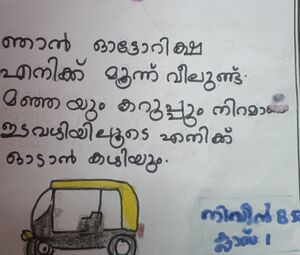 ഞാൻ ഓട്ടോറിക്ഷ
എനിക്ക് മൂന്ന് വീലുണ്ട്.
മഞ്ഞ യും കറുപ്പും നിറമാ
ഇടവഴിയിലൂടെ എനിക്ക്
ഓടാൻ കഴിയും.
നിവിൻ
ക്ലാസ് 1